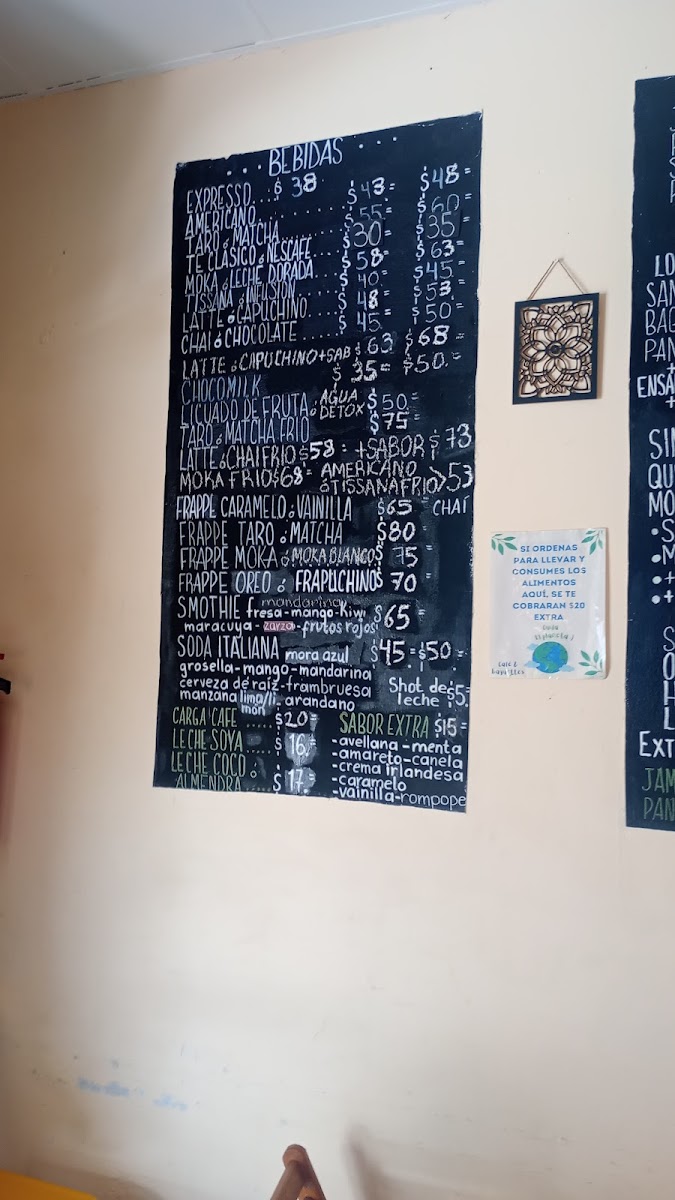 ... BEBIDAS ...
EXPRESSO... $ 38
AMERICANO........ $43= $48=
TARO ó MATCHA..... $55= $60=
TE CLÁSICO ó NESCAFÉ $30= $35=
MOKA ó LECHE DORADA... $58= $63=
TISSANA ó INFUSIÓN $40= $45=
LATTE ó CAPUCHINO..... $48= $53=
CHAI ó CHOCOLATE ..... $45= $50=
LATTE ó CAPUCHINO+SAB $63 $68=
CHOCOMILK $ 35= $50.=
LICUADO DE FRUTA ó AGUA DETOX $50=
TARO ó MATCHA FRIO $75=
LATTE ó CHAI FRIO $58= +SABOR $73
MOKA FRIO $68= AMERICANO
ó TISSANA FRIO >53
FRAPPE CARAMELO ó VAINILLA $65= CHAÍ
FRAPPE TARO ó MATCHA $80=
FRAPPE MOKA ó MOKA BLANCO $ 75=
FRAPPE OREO ó FRAPUCHINO $ 70=
SMOTHIE mandarina
fresa-mango-Kiwi $65=
maracuya-zarza-frutos rojos
SODA ITALIANA mora azul $45=$50=
grosella-mango-mandarina
cerveza de raiz-frambruesa
manzana lima/limon arandano
Shot de leche $5=
CARGA CAFE ..... $20=
LECHE SOYA ..... $ 16.=
LECHE COCO ó
ALMENDRA ..... $ 17.=
SABOR EXTRA $15=
-avellana -menta
-amareto-canela
-crema irlandesa
-caramelo
-vainilla-rompope
SI ORDENAS
PARA LLEVAR Y
CONSUMES LOS
ALIMENTOS
AQUÍ, SE TE
COBRARAN $20
EXTRA
LO
SAN
BAG
PAN
+
ENSA
+
SIN
QU
MO
•S
•M
•+
•+
S
O
H
L
EXT
JAM
PAN